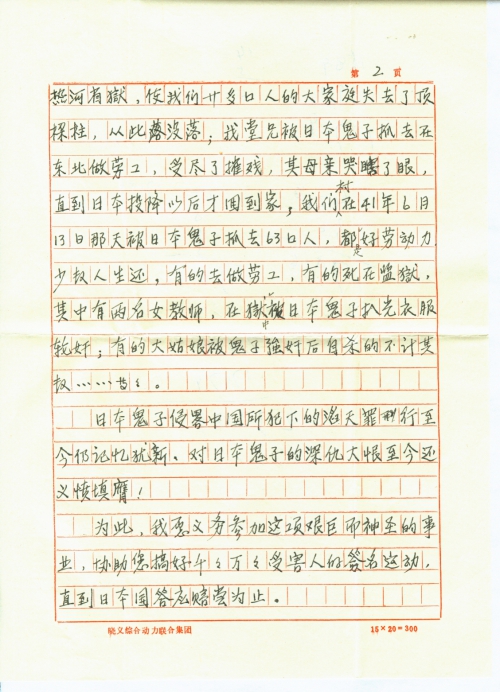 第 2 页
热河有狱，使我们廿多口人的大家庭失去了顶
梁柱，从此落没落；我堂兄被日本鬼子抓去在
东北做劳工，受尽了摧残，其母亲哭瞎了眼，
直到日本投降以后才回到家；我们村在41年6月
13日那天被日本鬼子抓去63口人，都是好劳动力
少数人生还，有的去做劳工，有的死在监狱，
其中有两名女教师，在狱中被日本鬼子扒光衣服
轮奸；有的大姑娘被鬼子强奸后自杀的不计其
数……等等。
日本鬼子侵略中国所犯下的滔天罪行至
今仍记忆犹新、对日本鬼子的深仇大恨至今还
义愤填膺！
为此，我愿义务参加这项艰巨而神圣的事
业，协助您搞好千々万々受害人的签名运动，
直到日本国答应赔尝为止。
晓义综合动力联合集团
15×20=300